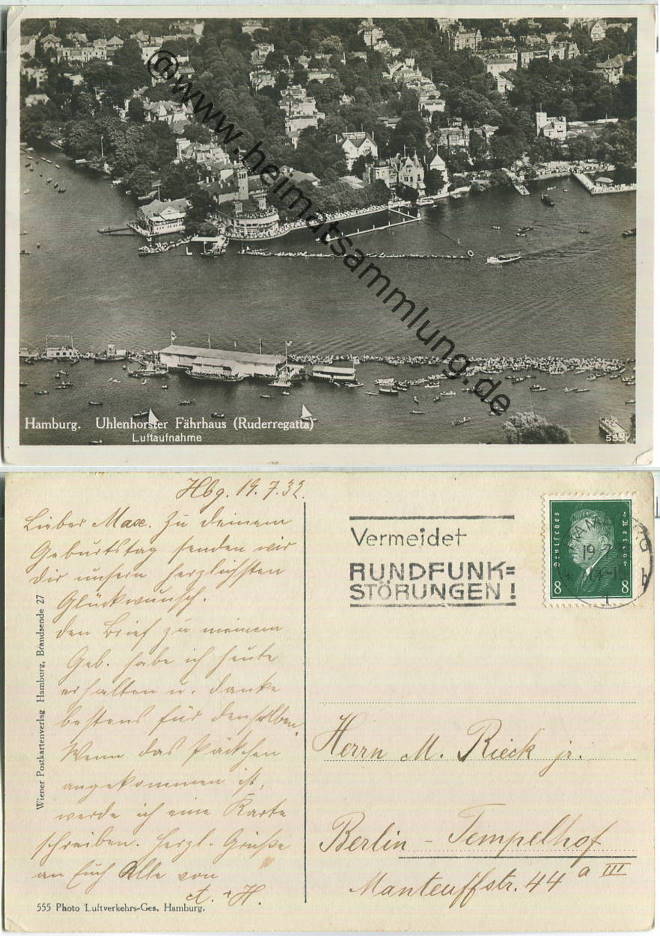 Hamburg. Uhlenhorster Fährhaus (Ruderregatta)
Luftaufnahme
555
©www.heimatsammlung.de
Hbg. 19.7.32.
Lieber Max. Zu deinem
Geburtstag senden wir
dir unsern herzlichsten
Glückwunsch.
den Brief zu meinem
Geb. habe ich heute
erhalten u. danke
bestens für denselben.
Wenn das Päckchen
angekommen ist,
werde ich eine Karte
schreiben. Herzl. Grüße
an Euch Alle von
A. + H.
Wiener Postkartenverlag Hamburg, Brandsende 27
555 Photo Luftverkehrs-Ges. Hamburg.
Vermeidet
RUNDFUNK=
STÖRUNGEN!
Deutsches
8 8
HAMBURG
19.7.
Herrn M. Rieck jr.
Berlin - Tempelhof
Manteuffstr. 44 a III